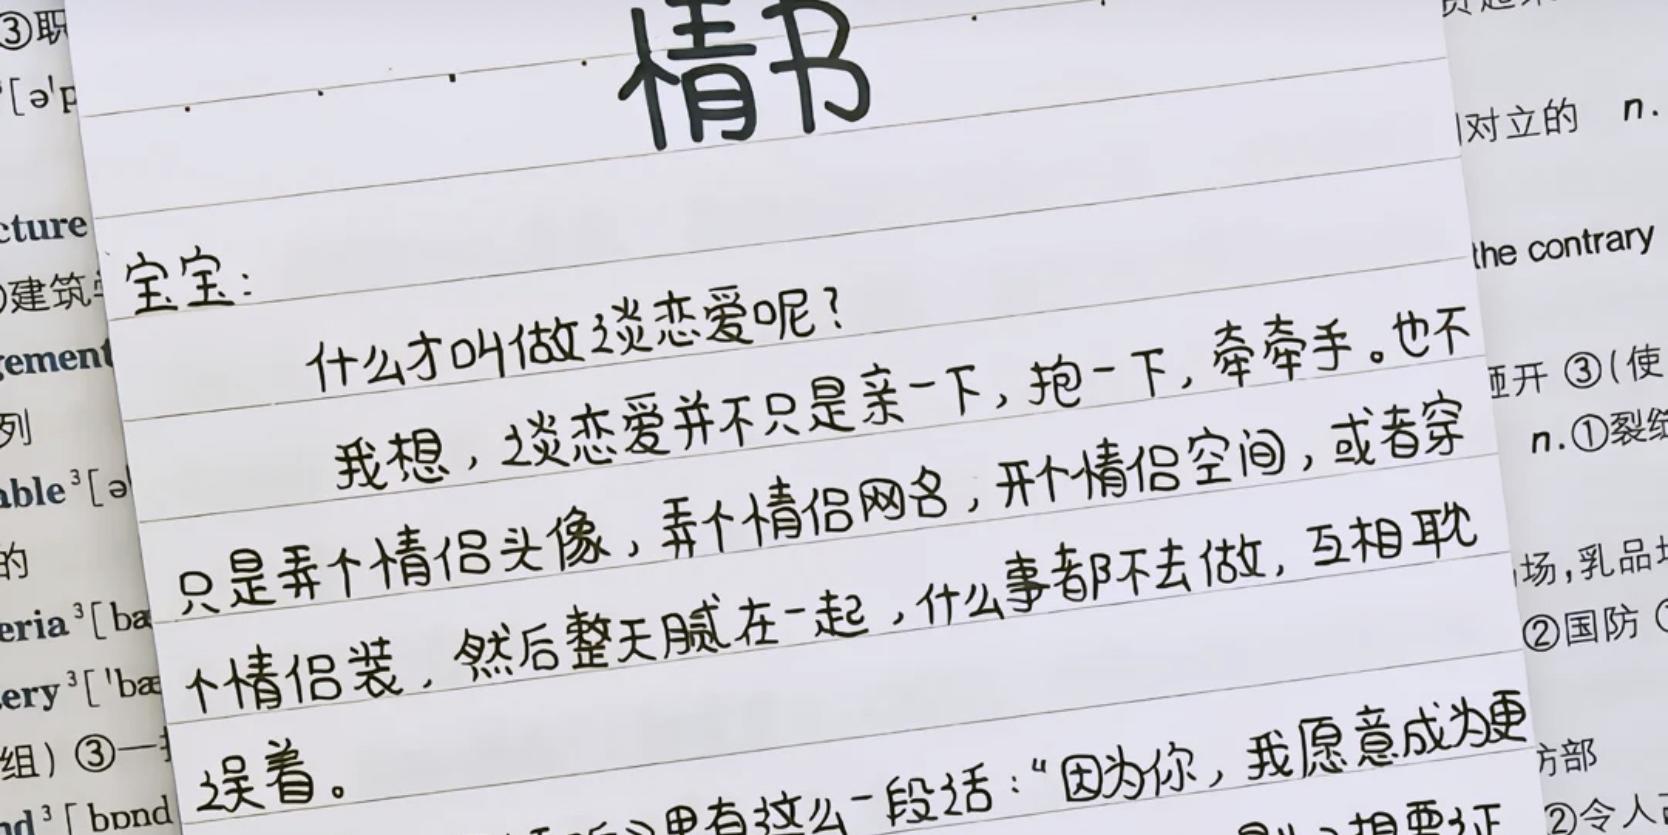 情书
宝宝：
什么才叫做谈恋爱呢？
我想，谈恋爱并不只是亲一下，抱一下，牵牵手。也不
只是弄个情侣头像，弄个情侣网名，开个情侣空间，或者穿
个情侣装，然后整天腻在一起，什么事都不去做，互相耽
误着。
里有这么一段话：“因为你，我愿意成为更
想要征
③职
[ə'p
cture
建筑
gement
列
able³[ə
的
eria³[bæ
ery³['bæ
组）③一
nd³[bɒnd
对立的 n.
the contrary
砸开 ③(使
n.①裂
场,乳品
②国防
防部
②令人